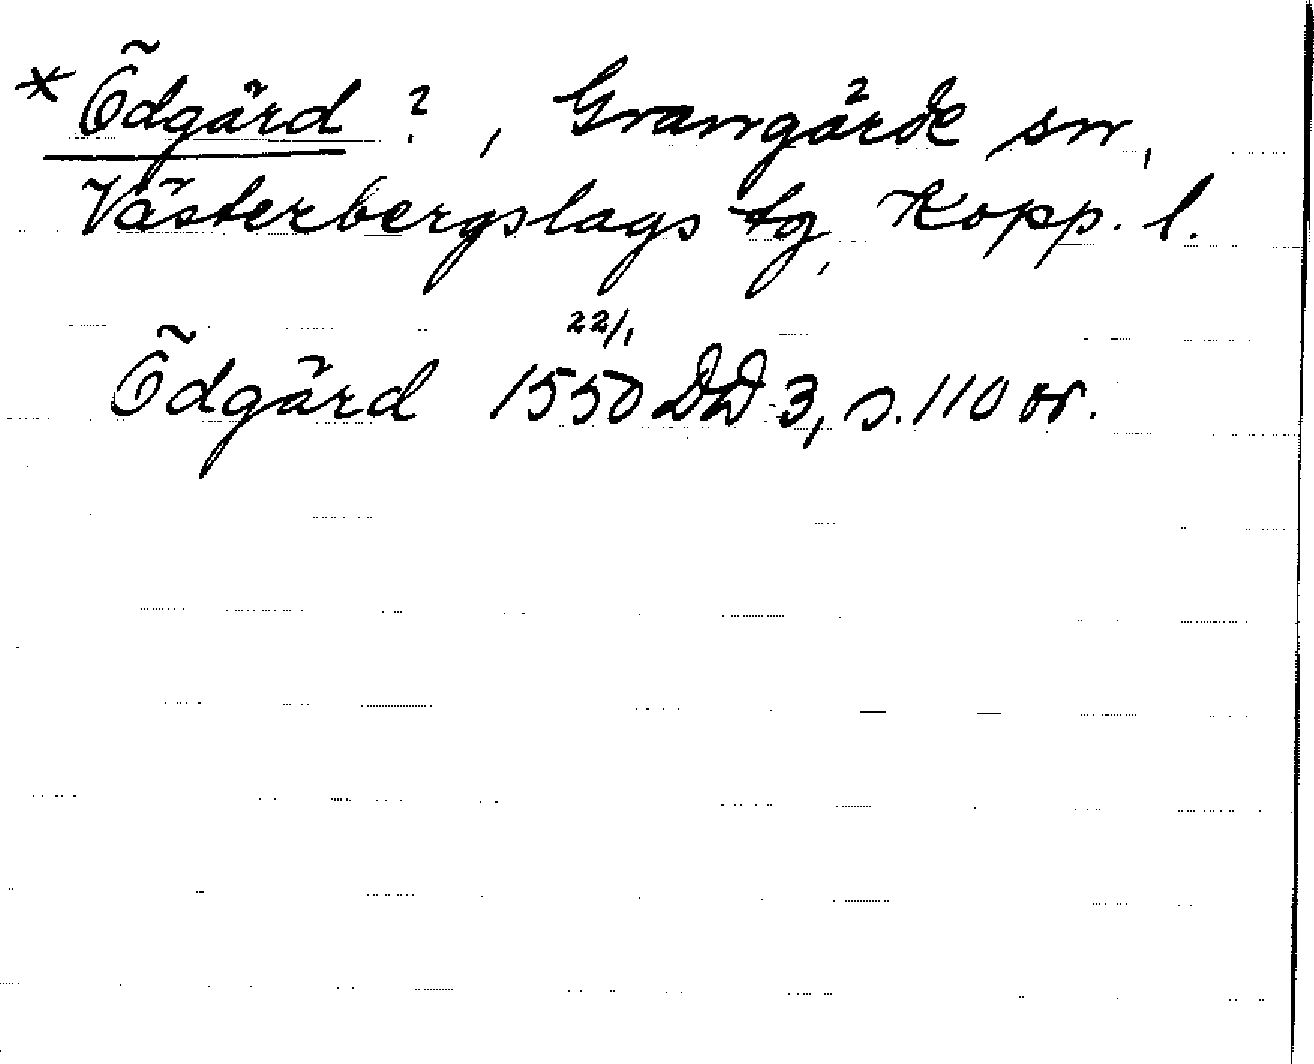 * Ödgärd ?, Grangärde sn,
Västerbergslags tg, Kopp. l.
Ödgärd 22/1 1550 DD 3, s. 110 or.